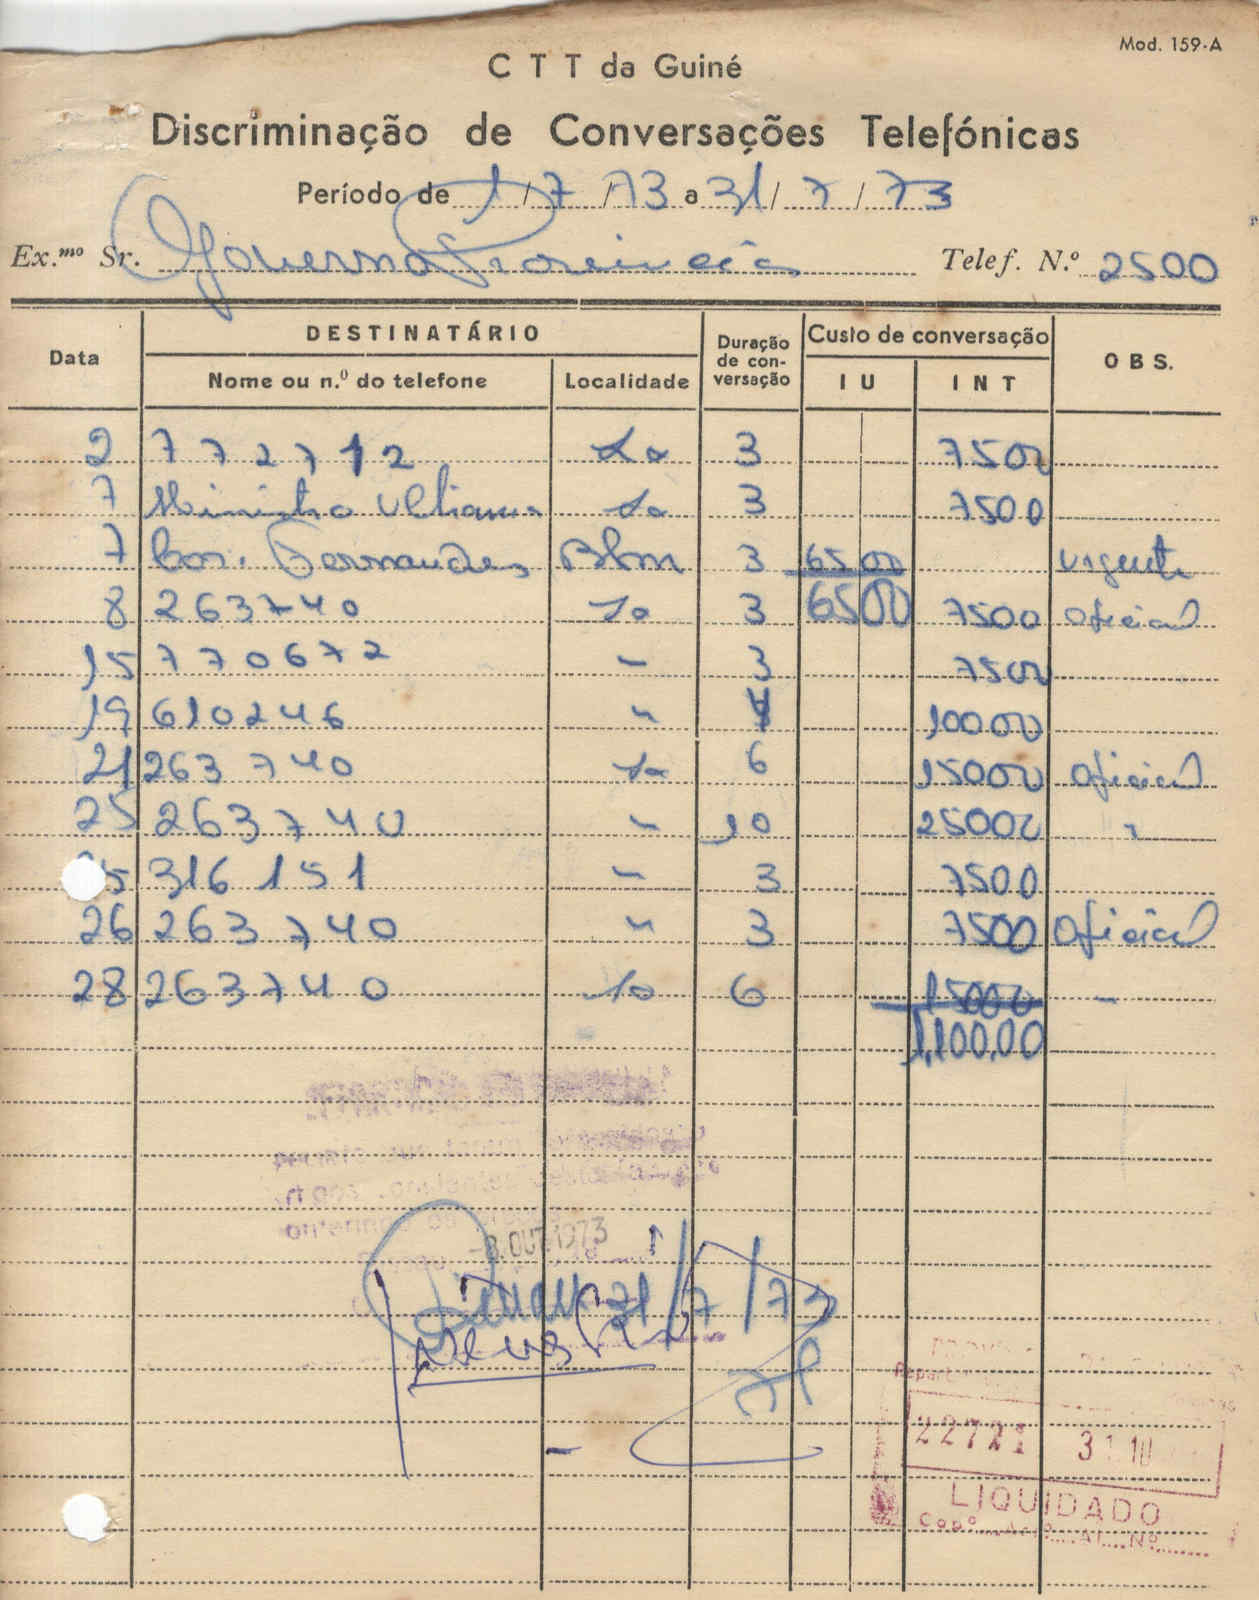 Mod. 159-A
C T T da Guiné
Discriminação de Conversações Telefónicas
Período de 1/7/73 a 31/7/73
Ex.mo Sr. Governo Telef. N.º 2500
Data DESTINATÁRIO Duração de con- versação Custo de conversação O B S.
Nome ou n.º do telefone Localidade I U I N T
2 772712 3 7500
7 Ministro 3 7500
7 Cor. Fernandes 3 6500 urgente
8 263740 3 6500 7500 oficial
15 770672 " 3 7500
19 610246 " 4 10000
21 263740 6 15000 oficial
25 263740 " 10 25000 "
5 316151 " 3 7500
26 263740 " 3 7500 oficial
28 263740 6 15000 "
1,100,00
-8.OUT.1973
31/7/73
22721 31 10
LIQUIDADO
Cap.º Art.º Al. Nº